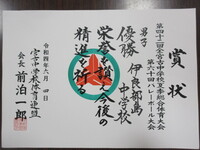 賞状
第四十二回全宮古中学校夏季総合体育大会
第六十回バレーボール大会
男子
優勝 伊良部島中学校
栄誉を讃え今後の
精進を祈る
令和四年六月四日
宮古中学校体育連盟
会長 前泊一郎